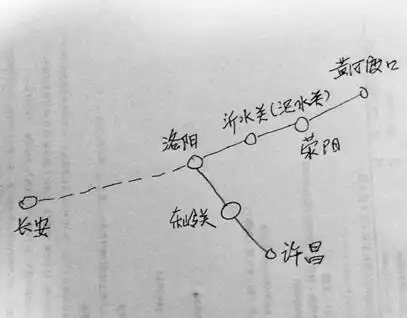 黄河渡口
沂水关(汜水关)
洛阳
荥阳
长安
东岭关
许昌